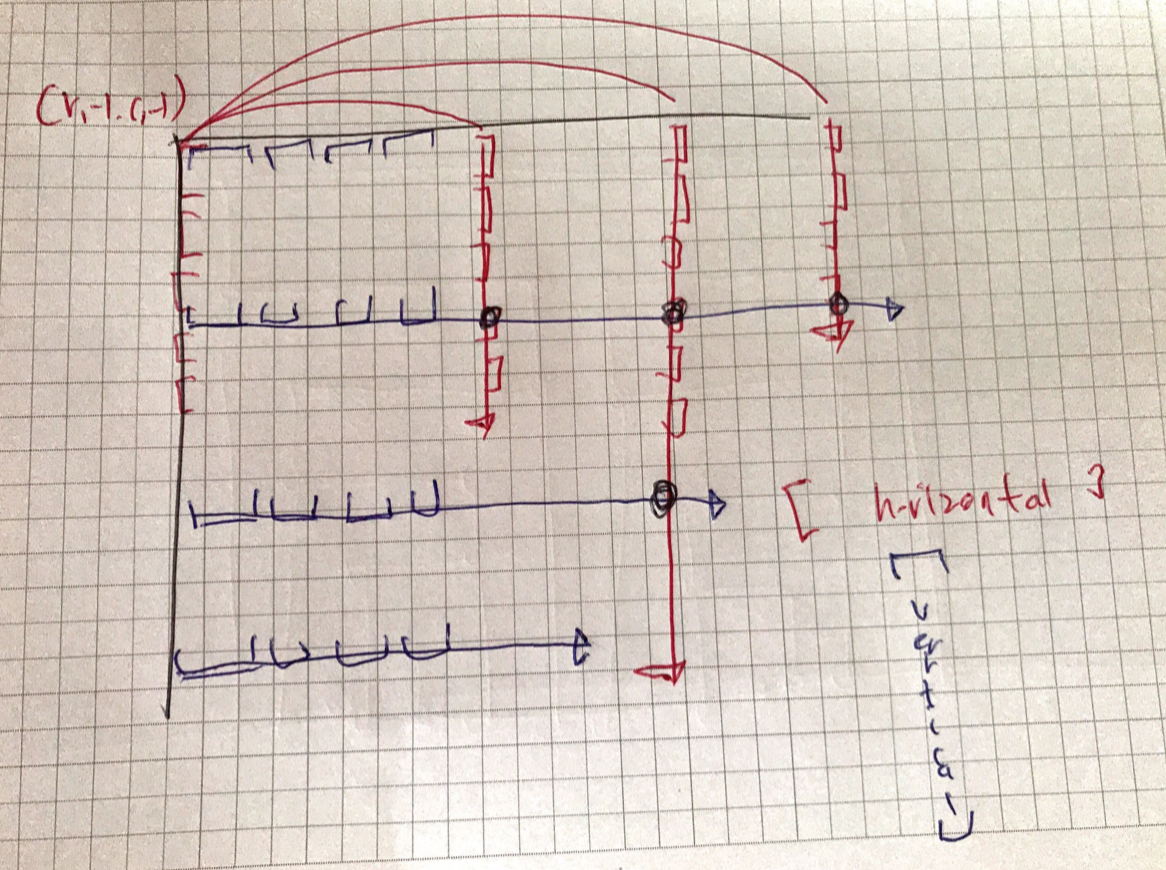 (r,-1.c,-1)
[ horizontal ]
[ vertical ]